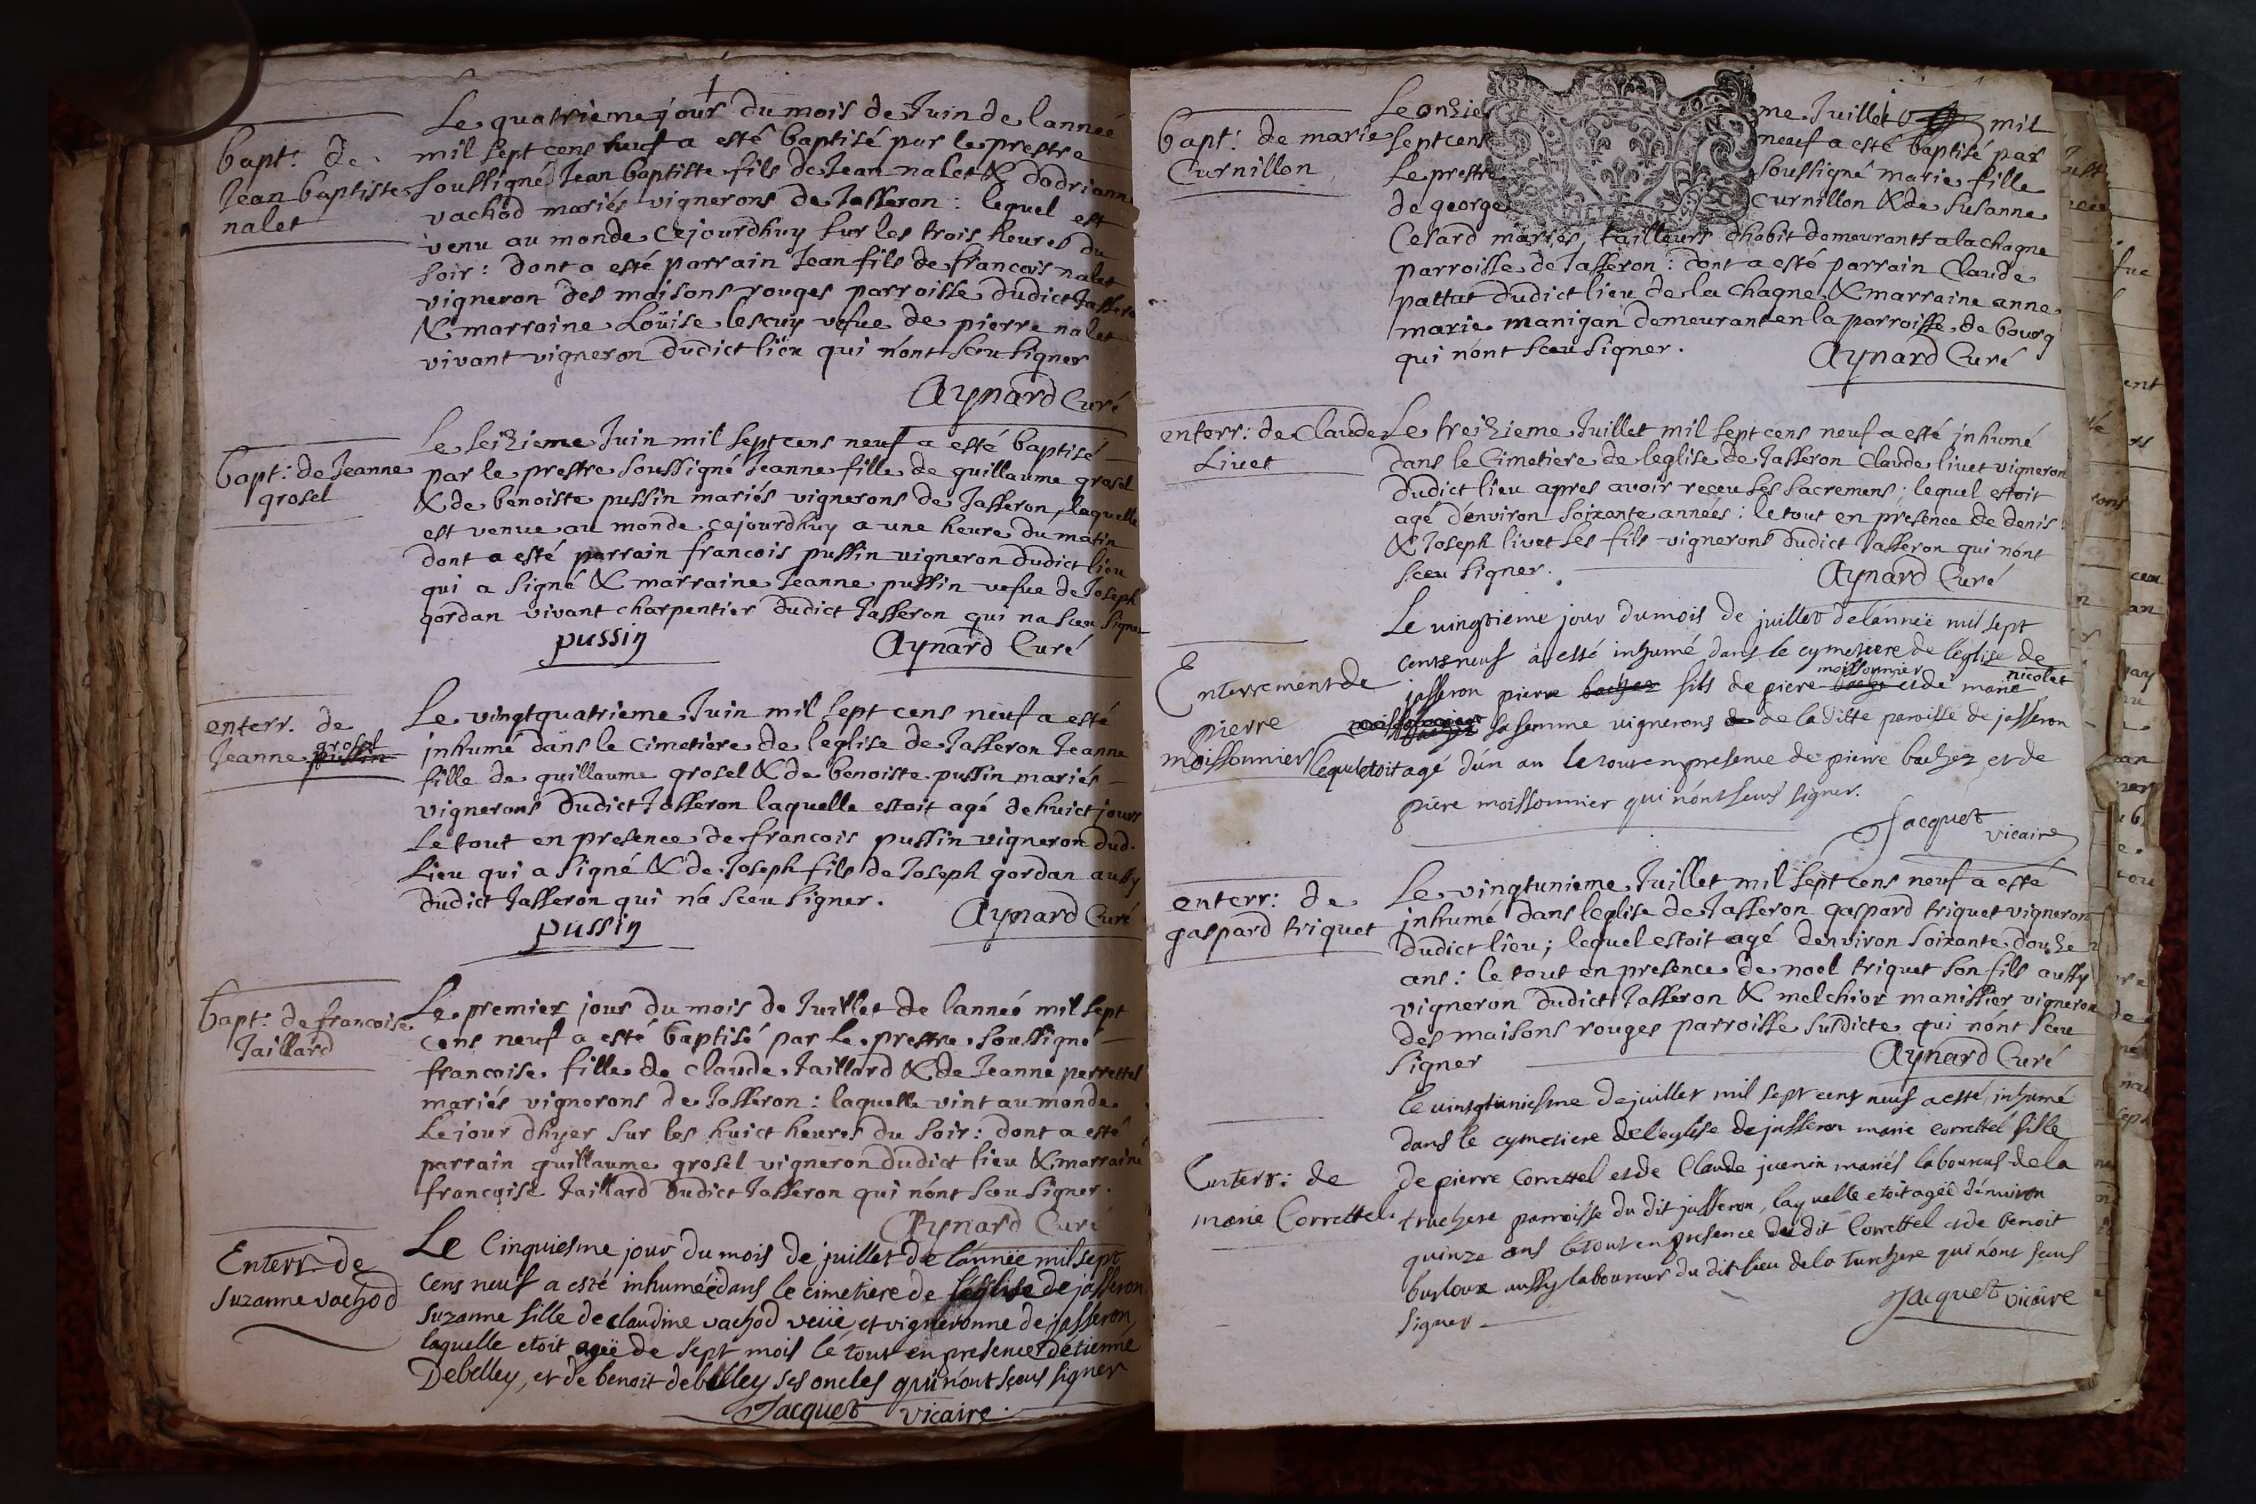 Le quatrieme jour du mois de Juin de lanneé
bapt: de
Jean baptiste
nalet
mil sept cens neuf a esté baptisé par le prestre
soussigné Jean baptiste fils de Jean nalet & dadrianne
vachod mariés vignerons de Jasseron: lequel est
venu au monde cejourdhuy sur les trois heures du
soir: dont a esté parrain Jean fils de francois nalet
vigneron des maisons rouges parroisse dudict Jasseron
& marraine Loüise lescuy vefue de pierre nalet
vivant vigneron dudict lieu qui n'ont sceu signer
Aynard Curé
bapt: de Jeanne
grosel
Le seizieme Juin mil sept cens neuf a esté baptisé
par le prestre soussigné Jeanne fille de guillaume grosel
& de benoiste pussin mariés vignerons de Jasseron, laquelle
est venue au monde cejourdhuy a une heure du matin
dont a esté parrain francois pussin vigneron dudict lieu
qui a signé & marraine Jeanne pussin vefue de Joseph
gordan vivant charpentier dudict Jasseron qui na sceu signer
pussin Aynard Curé
enterr. de
grosel
Jeanne pussin
Le vingtquatrieme Juin mil sept cens neuf a esté
inhumé dans le cimetiere de leglise de Jasseron Jeanne
fille de guillaume grosel & de benoiste pussin mariés
vignerons dudict Jasseron laquelle estoit agé de huict jours
Le tout en presence de francois pussin vigneron dud.
Lieu qui a signé & de Joseph fils de Joseph gordan aussy
dudict Jasseron qui n'a sceu signer.
pussin Aynard Curé
bapt: de francoise
Jaillard
Le premier jour du mois de Juillet de lanneé mil sept
cens neuf a esté baptisé par le prestre soussigné
francoise fille de claude Jaillard & de Jeanne perrettel
mariés vignerons de Jasseron: laquelle vint au monde
Le jour dhyer sur les huict heures du soir: dont a esté
parrain guillaume grosel vigneron dudict lieu & marraine
francoise Jaillard dudict Jasseron qui n'ont sceu signer.
Aynard Curé
Enterr. de
suzanne vachod
Le Cinquiesme jour du mois de juillet de l'année mil sept
cens neuf a esté inhumée dans le cimetiere de l'église de jasseron
suzanne fille de claudine vachod veüe et vigneronne de jasseron,
laquelle etoit ageë de sept mois le tout en presence d'étienne
Debelley, et de benoit debelley ses oncles qui n'ont sceus signer
Jacquet vicaire.
bapt: de marie
Curnillon
Le onzieme Juillet mil
sept cens neuf a esté baptisé par
Le prestre soussigné marie fille
de george Curnillon & de susanne
Cesard mariés, tailleurs dhabit demeurants a la chagne
parroisse de Jasseron: dont a esté parrain Claude
pattat dudict lieu de la Chagne & marraine anne
marie manigan demeurant en la parroisse de bourg
qui n'ont sceu signer. Aynard Curé
enterr: de Claude
Livet
Le treizieme Juillet mil sept cens neuf a esté inhumé
dans le Cimetiere de leglise de Jasseron Claude livet vigneron
dudict lieu apres avoir receu ses sacremens; lequel estoit
agé d'environ soixante années: le tout en presence de denis
& Joseph livet ses fils vignerons dudict Jasseron qui n'ont
sceu signer. Aynard Curé
Enterrement de
pierre
moissonnier
Le vingtieme jour du mois de juillet de l'anneë mil sept
cents neuf à esté inhumé dans le cymetiere de l'église de
moissonnier nicolet
jasseron pierre bachez fils de piere et de marie
sa femme vignerons de la ditte paroisse de jasseron
lequel etoit agé d'un an le tout en presence de pierre bachez et de
piere moissonnier qui n'ont sceus signer.
Jacquet vicaire
enterr: de
gaspard triquet
Le vingtunieme Juillet mil sept cens neuf a esté
inhumé dans leglise de Jasseron gaspard triquet vigneron
dudict lieu; lequel estoit agé denviron soixante douze
ans: le tout en presence de noel triquet son fils aussy
vigneron dudict Jasseron & melchior manissier vigneron
des maisons rouges parroisse susdicte qui n'ont sceu
signer Aynard Curé
Enterr: de
marie Correttel
le vingtuniesme de juillet mil sept cens neuf a esté inhumé
dans le cymetiere de l'eglise de jasseron marie correttel fille
de pierre Correttel et de Claude juenin mariés laboureurs de la
truchere parroisse du dit jasseron, laquelle etoit ageë d'environ
quinze ans le tout en presence du dit Correttel et de benoit
burloux aussy laboureur du dit lieu de la truchere qui n'ont sceus
signer
Jacquet vicaire